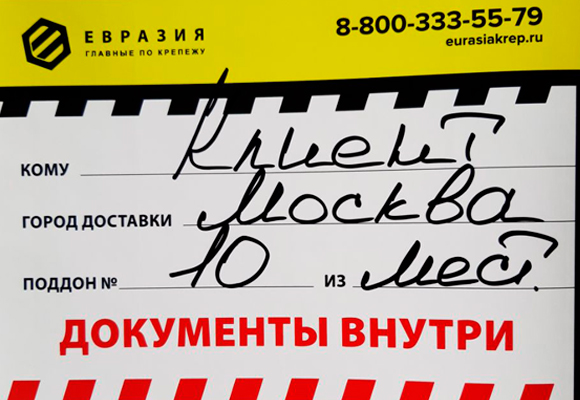 ЕВРАЗИЯ
ГЛАВНЫЕ ПО КРЕПЕЖУ
8-800-333-55-79
eurasiakrep.ru
КОМУ Клиент
ГОРОД ДОСТАВКИ Москва
ПОДДОН № 10 ИЗ мест.
ДОКУМЕНТЫ ВНУТРИ